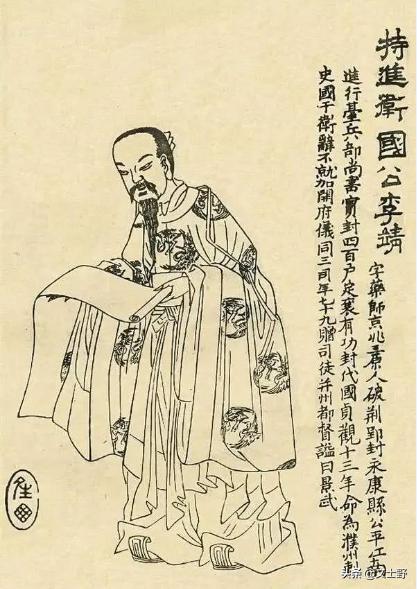 特進衛國公李靖
字藥師京兆三原人破荊郢封永康縣公平江南
進行臺兵部尚書實封四百戶定襄有功封代國貞觀十三年命為濮州刺
史國于衛辭不就加開府儀同三司年七十九贈司徒并州都督謚曰景武
头条 @文士野